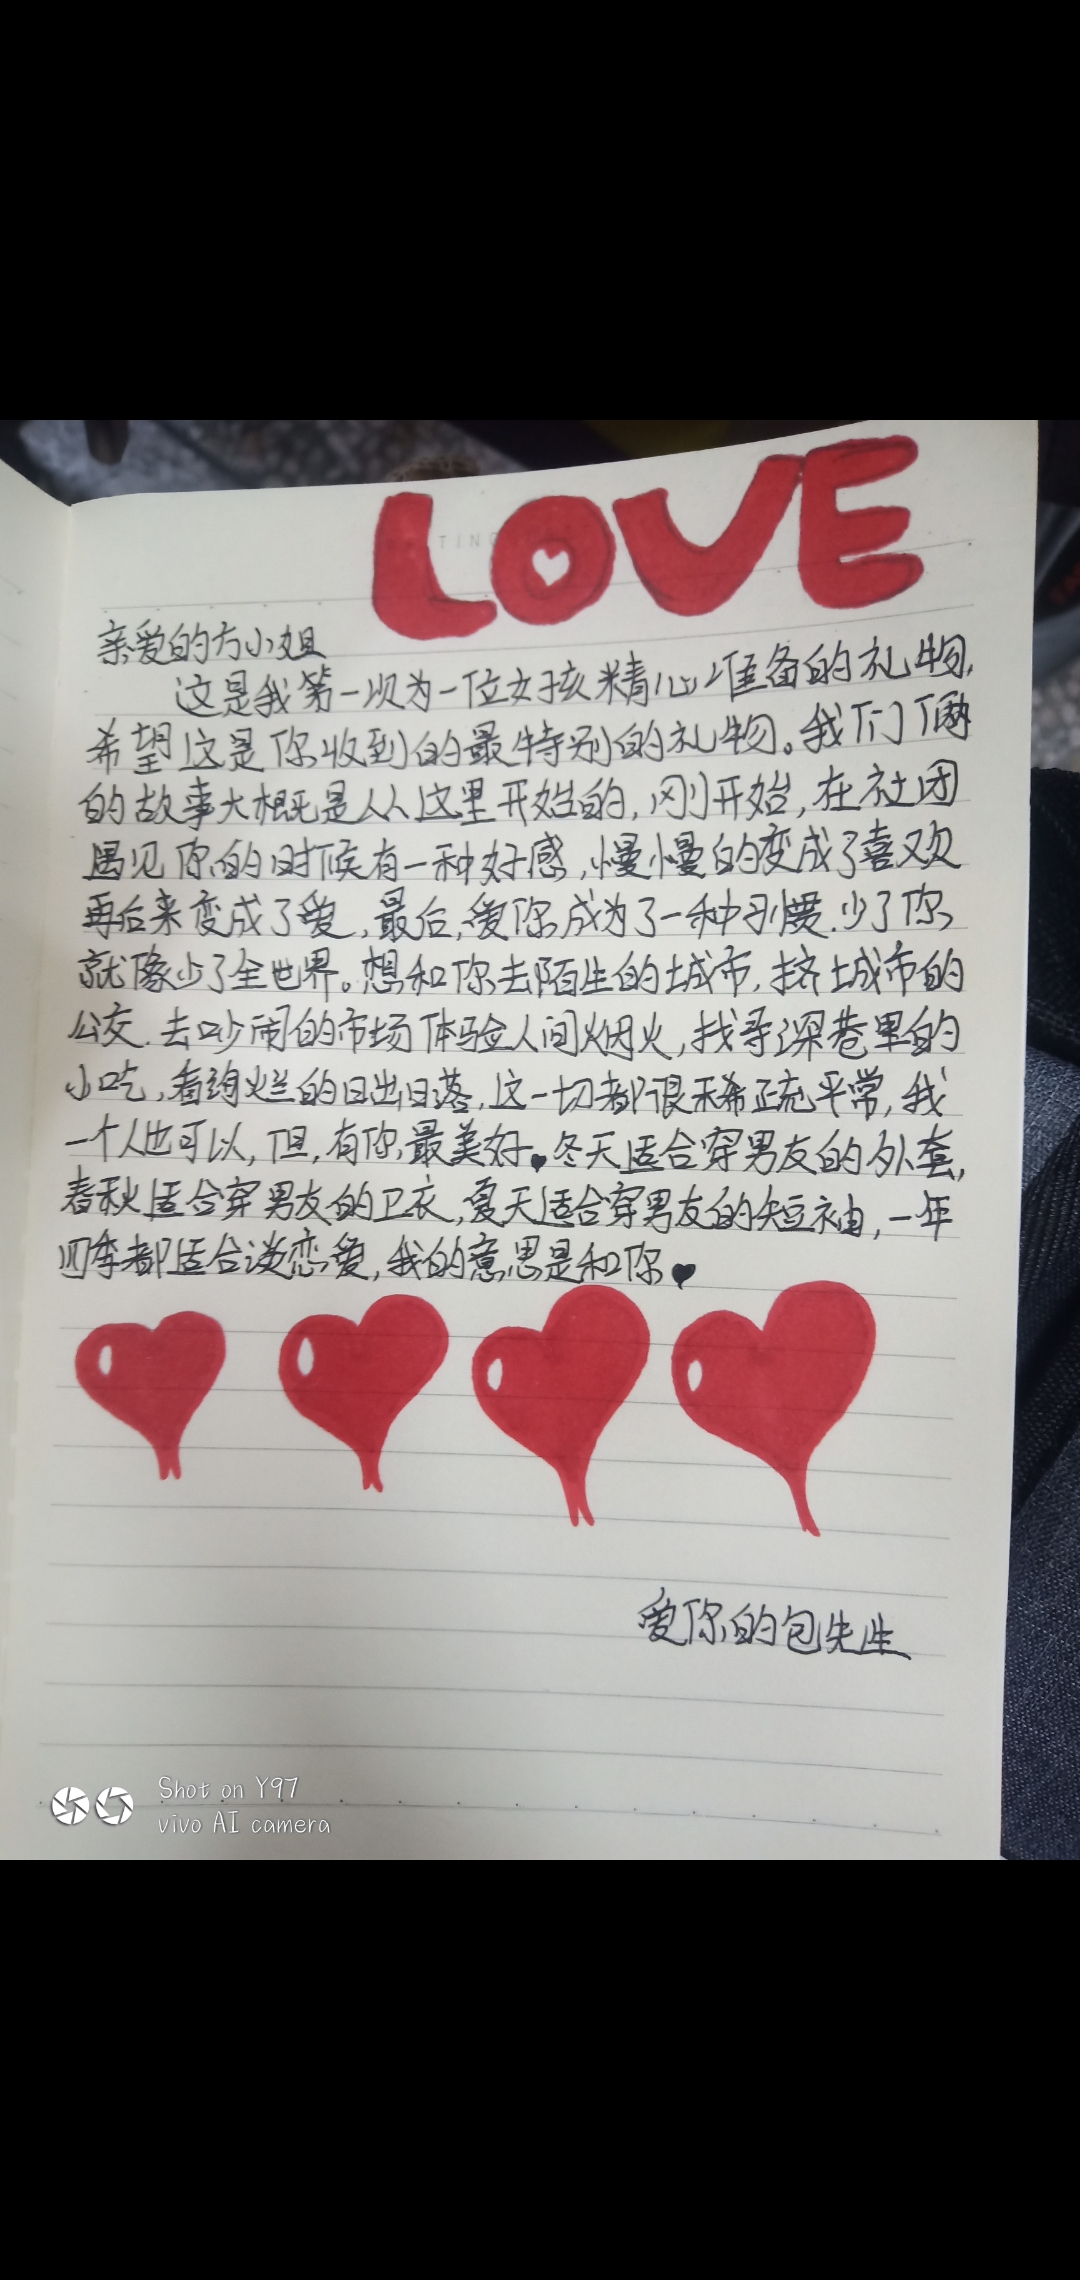 LOVE
TING
亲爱的方小姐
这是我第一次为一位女孩精心准备的礼物,
希望这是你收到的最特别的礼物。我们俩
的故事大概是从这里开始的,刚开始,在社团
遇见你的时候有一种好感,慢慢的变成了喜欢
再后来变成了爱,最后,爱你成为了一种习惯.少了你
就像少了全世界。想和你去陌生的城市,挤城市的
公交.去吵闹的市场体验人间烟火,找寻深巷里的
小吃,看绚烂的日出日落,这一切都很稀疏平常,我
一个人也可以,但,有你最美好。冬天适合穿男友的外套,
春秋适合穿男友的卫衣,夏天适合穿男友的短袖,一年
四季都适合谈恋爱,我的意思是和你
爱你的包先生
Shot on Y97
vivo AI camera